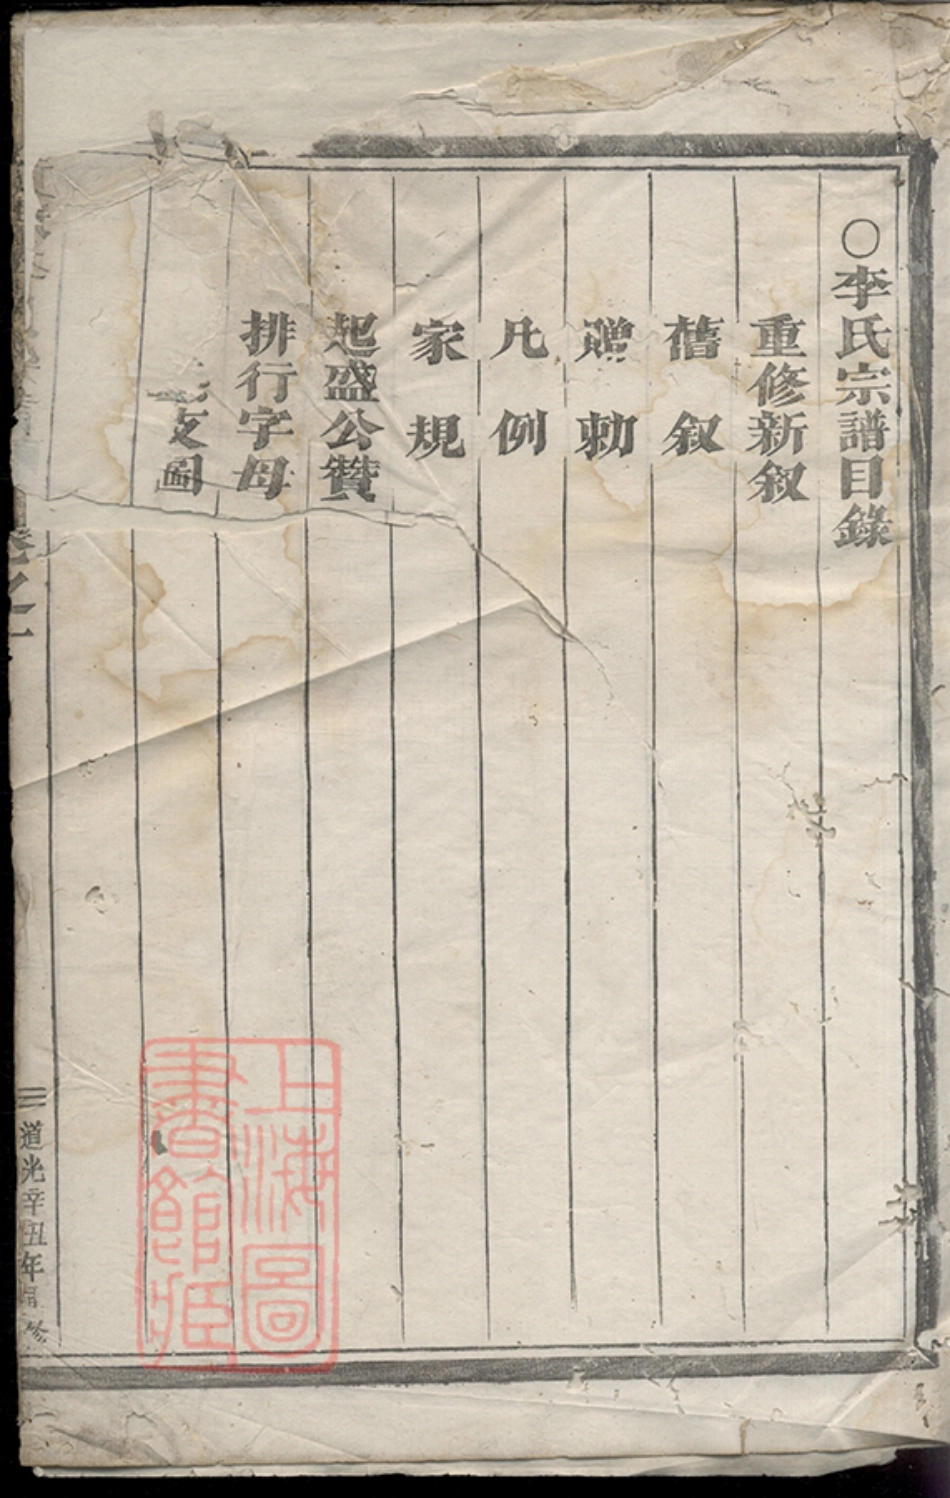 ○李氏宗譜目錄
重修新叙
舊叙
贈勅
凡例
家規
起盛公贊
排行字母
支圖
卷之一
道光辛丑年 修
上海圖書館藏